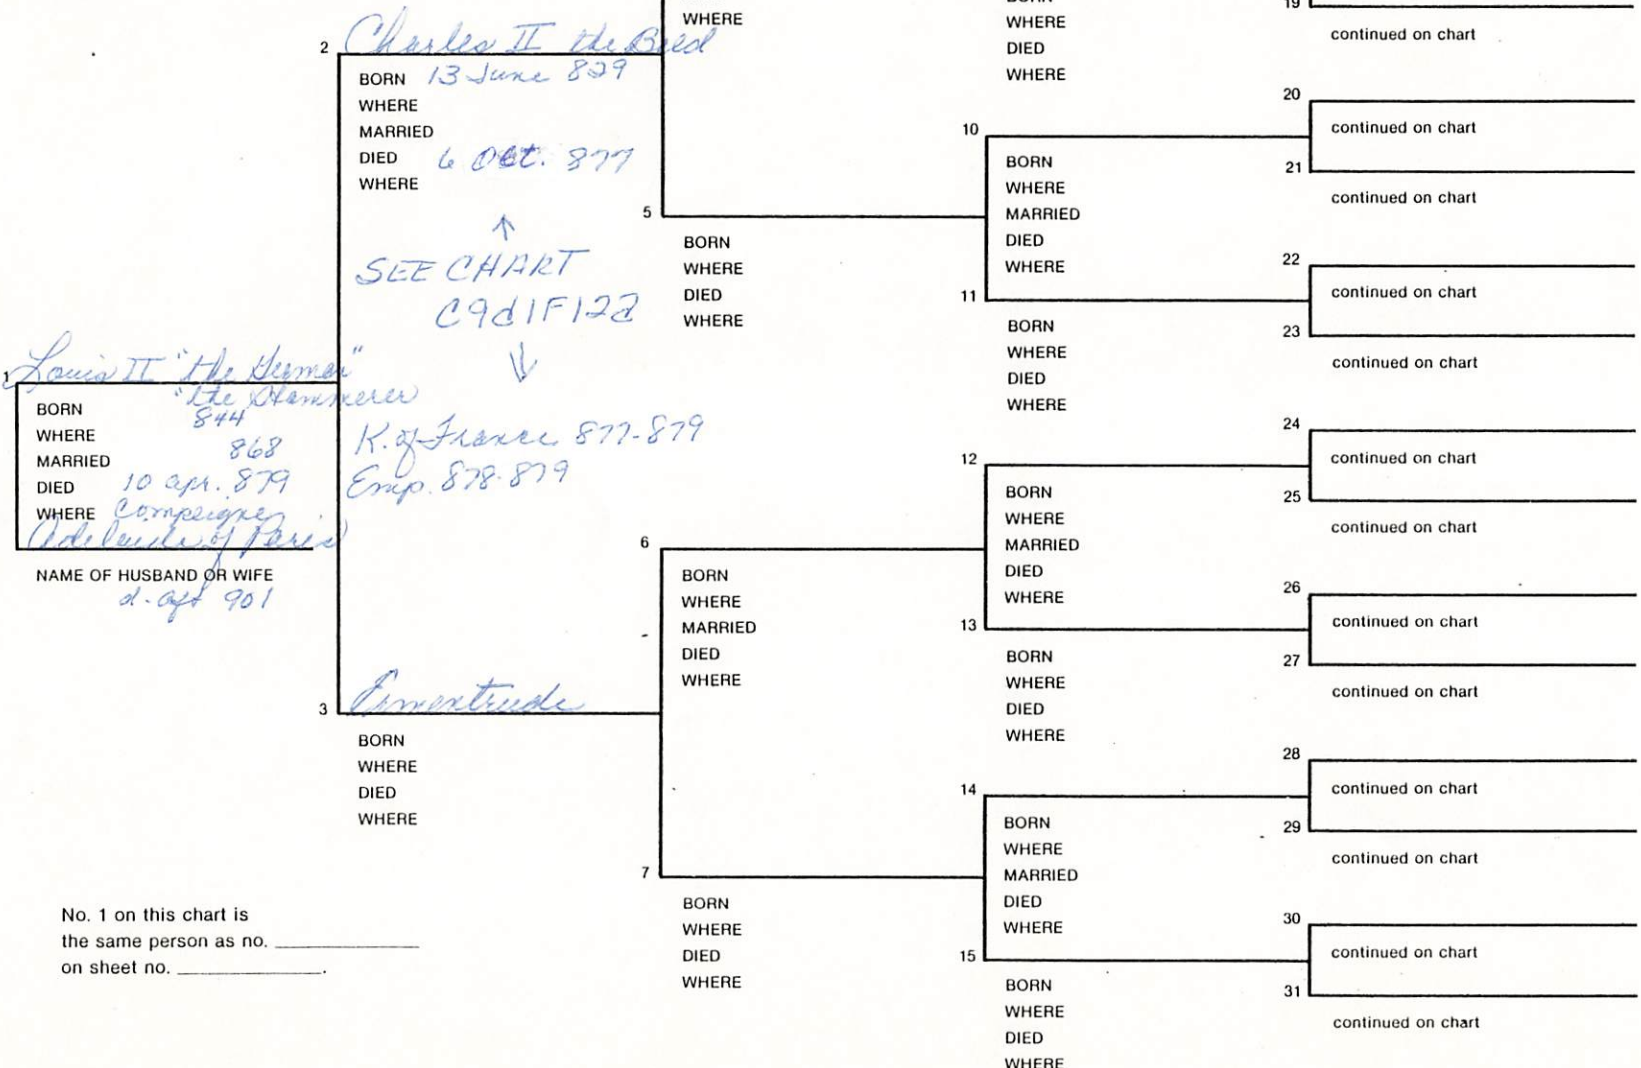 1
Louis II "the German"
"the Stammerer
BORN 844
WHERE
MARRIED 868
DIED 10 apr. 879
WHERE Compeigne
Adelaide of Paris
NAME OF HUSBAND OR WIFE
d. aft 901
2
Charles II the Bald
BORN 13 June 829
WHERE
MARRIED
DIED 6 Oct. 877
WHERE
↑
SEE CHART
↓
K. of France 877-879
Emp. 878-879
3
Ermentrude
BORN
WHERE
DIED
WHERE
No. 1 on this chart is
the same person as no.
on sheet no.
WHERE
5
BORN
WHERE
DIED
WHERE
6
BORN
WHERE
MARRIED
DIED
WHERE
7
BORN
WHERE
DIED
WHERE
BORN
WHERE
DIED
WHERE
10
BORN
WHERE
MARRIED
DIED
WHERE
11
BORN
WHERE
DIED
WHERE
12
BORN
WHERE
MARRIED
DIED
WHERE
13
BORN
WHERE
DIED
WHERE
14
BORN
WHERE
MARRIED
DIED
WHERE
15
BORN
WHERE
DIED
WHERE
19
continued on chart
20
continued on chart
21
continued on chart
22
continued on chart
23
continued on chart
24
continued on chart
25
continued on chart
26
continued on chart
27
continued on chart
28
continued on chart
29
continued on chart
30
continued on chart
31
continued on chart